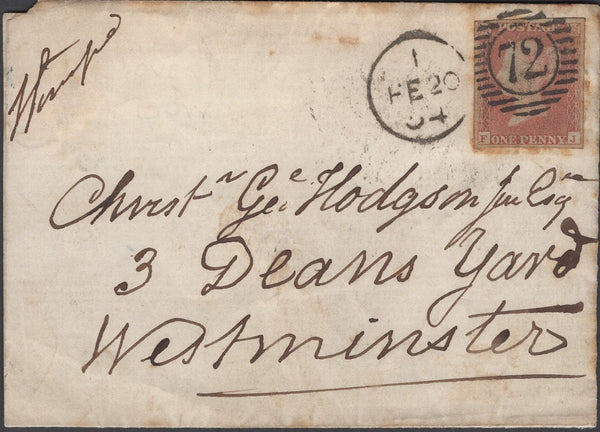 Stampd
1
FE 20
54
POSTAGE
72
F J
ONE PENNY
Christr Geo. Hodgson Junr Esqr
3 Deans Yard
Westminster